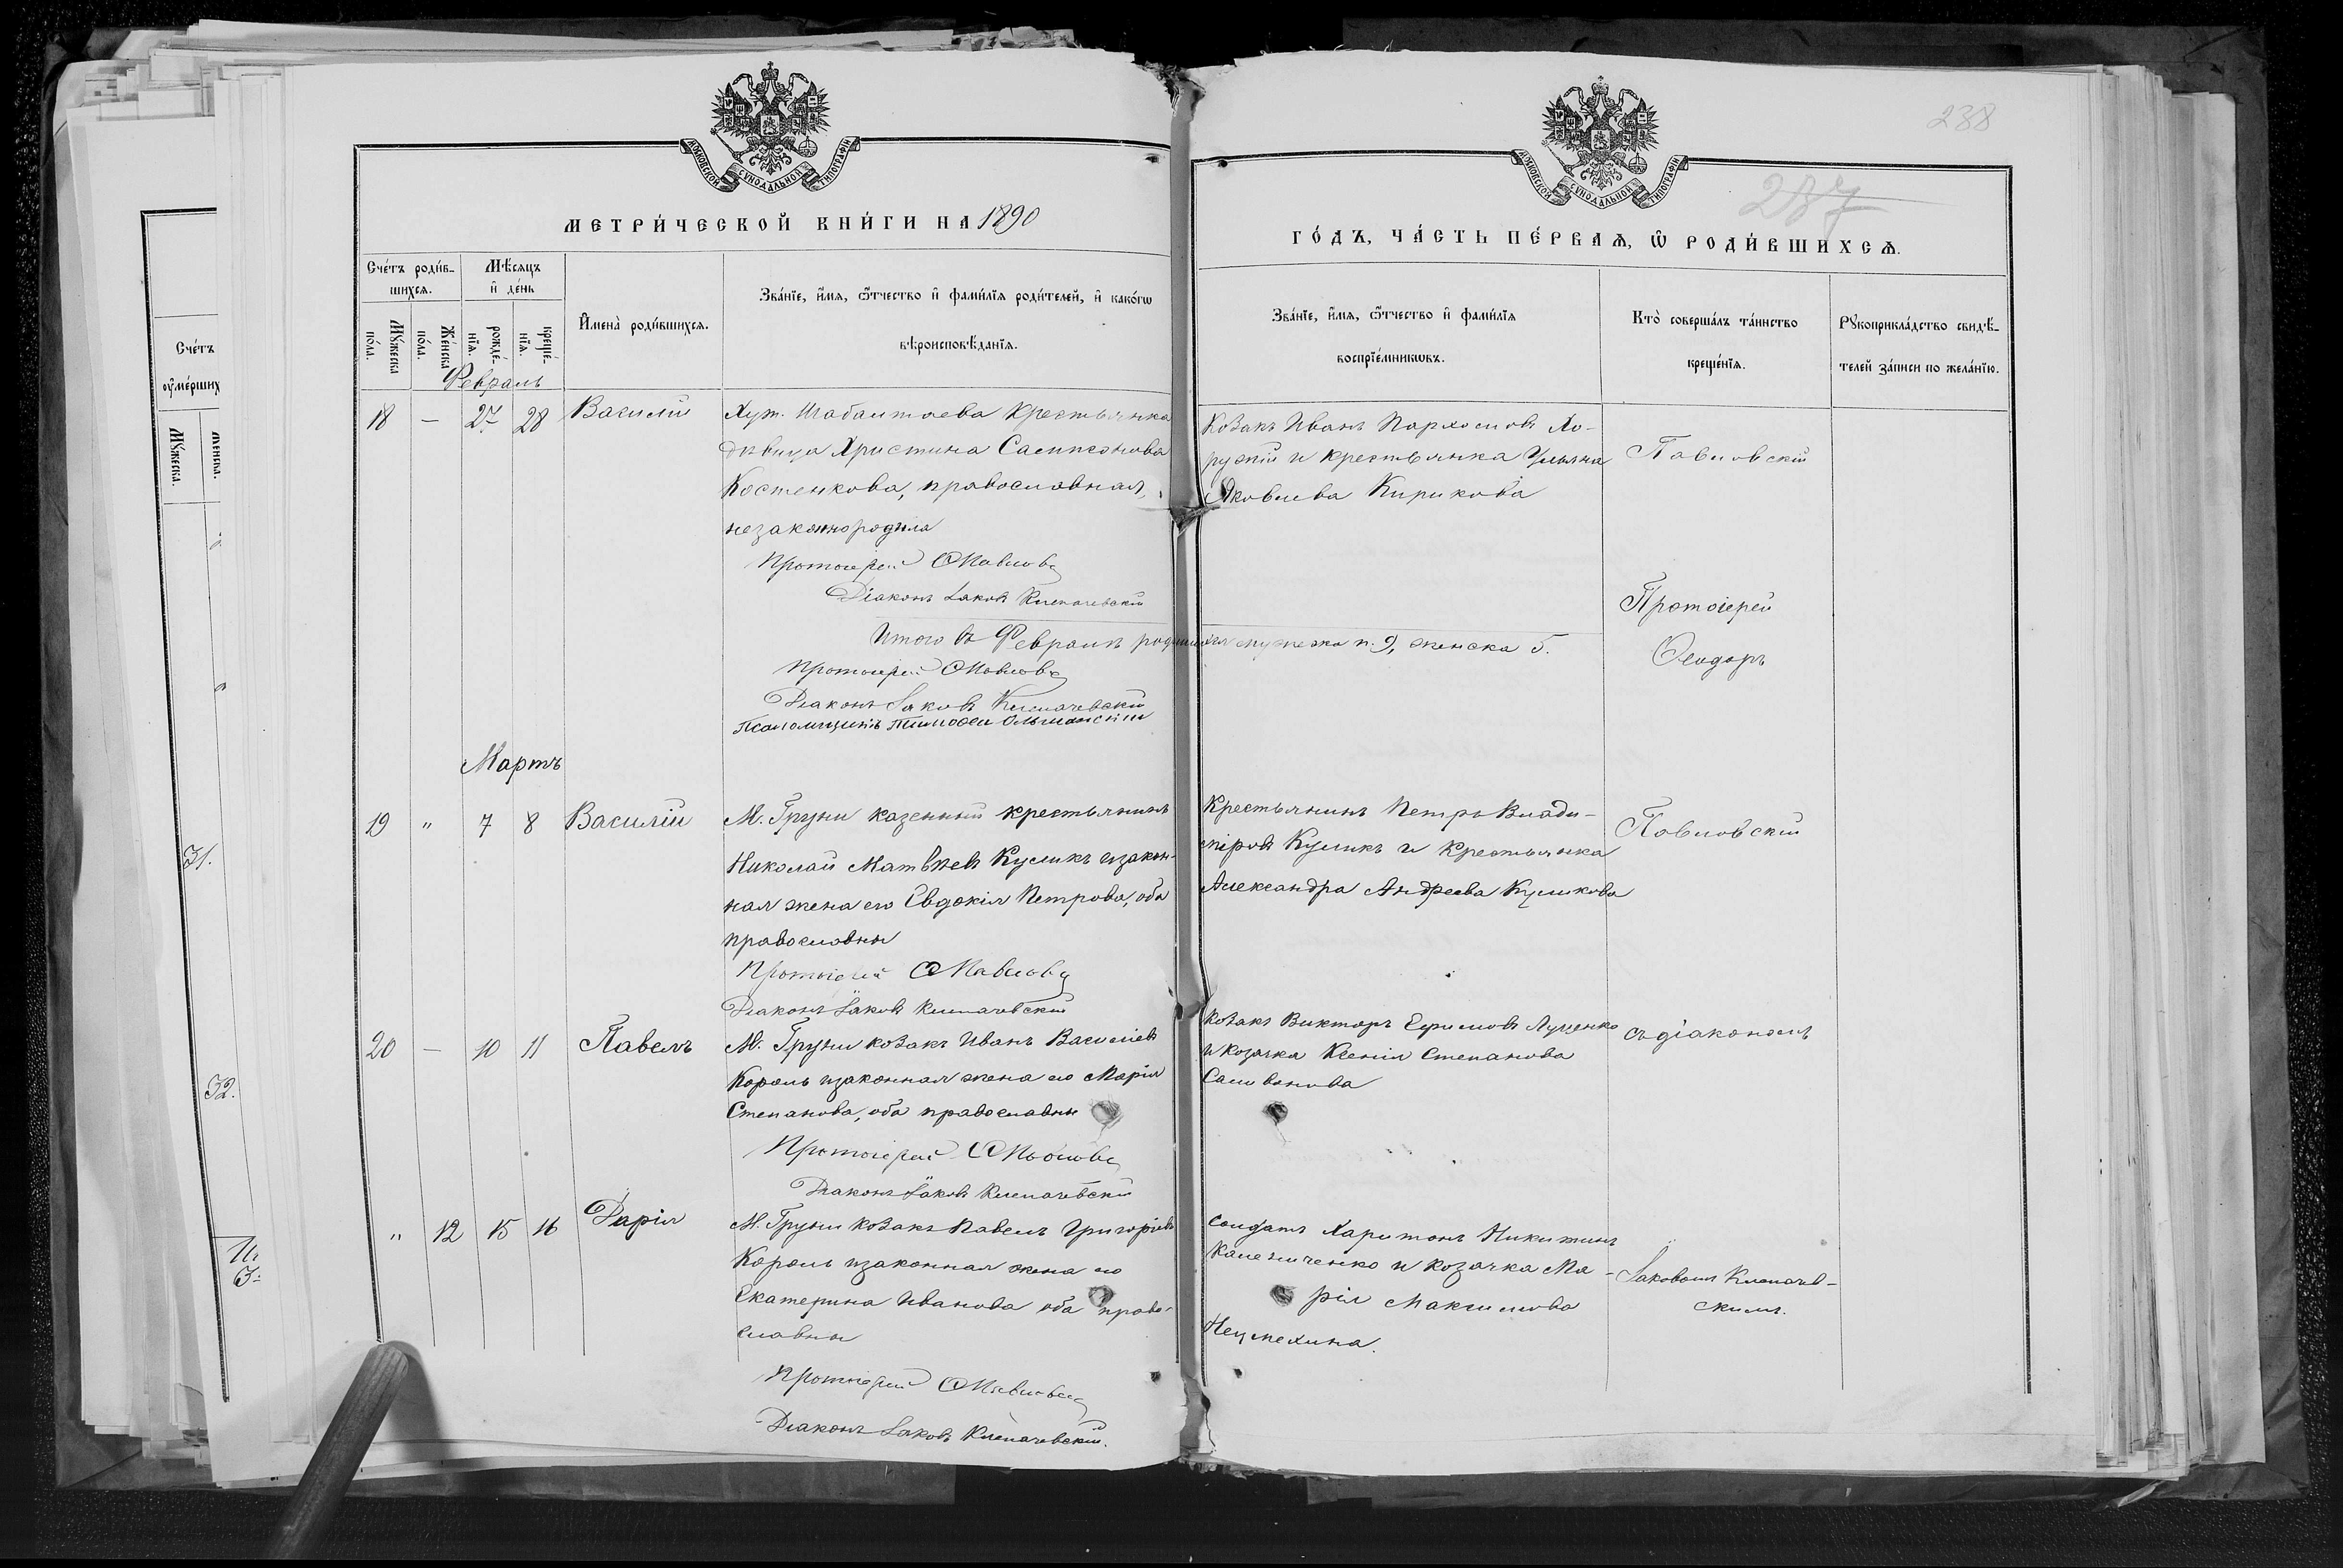 238
287
МОСКОВСКОЙ СѴНОДАЛЬНОЙ ТИПОГРАФІИ
МОСКОВСКОЙ СѴНОДАЛЬНОЙ ТИПОГРАФІИ
МЕТРИ́ЧЕСКОЙ КНИ́ГИ НА 1890
ГО́ДЪ, ЧА́СТЬ ПЕ́РВАѦ, Ѡ҆ РОДИ́ВШИХСѦ.
Счéтъ роди́в-
шихсѧ.
Мꙋ́жеска
по́ла.
Же́нска
по́ла.
Мѣ́сѧцъ
и҆ де́нь
рожде́-
нїѧ.
креще́-
нїѧ.
И҆мена̀ роди́вшихсѧ.
Зва́нїе, и҆́мѧ, ѻ҆́тчество и҆ фами́лїѧ роди́телей, и҆ како́гѡ
вѣроисповѣ́данїѧ.
Зва́нїе, и҆́мѧ, ѻ҆́тчество и҆ фами́лїѧ
воспрїе́мникѡвъ.
Кто̀ соверша́лъ та́инство
креще́нїѧ.
Рꙋкоприкла́дство свидѣ́-
телей за́писи по жела́нїю.
Счéтъ
ѹ҆ме́рших
Мꙋ́жеска.
Женска.
31.
32.
Февраль
18 — 27 28 Василій
Хут. Шабалтаева крестьянка
дѣвица Христина Сампсонова
Костенкова, православная,
незаконно родила
Протоіерей Ѳ Павловс
Діаконъ Іаковъ Клепачевскій
Козакъ Иванъ Пархомовъ Хо-
ружій и крестьянка Ульяна
Яковлева Кирикова
Павловскій
Протоіерей
Ѳеодоръ
Итого въ Февралѣ родилось мужеска п. 9, женска 5.
Протоіерей Ѳ Павловс
Діаконъ Іаковъ Клепачевскій
Псаломщикъ Тимоѳей Ольшанскій
Мартъ
19 " 7 8 Василій
М. Груни казенный крестьянинъ
Николай Матвѣевъ Куликъ изакон-
ная жена его Евдокія Петрова, оба
православны
Протоіерей Ѳ Павловс
Діаконъ Іаковъ Клепачевскій
Крестьянинъ Петръ Влади-
міровъ Куликъ и крестьянка
Александра Андреева Куликова
Павловскій
20 — 10 11 Павелъ
М. Груни козакъ Иванъ Василіевъ
Король изаконная жена его Марія
Степанова, оба православны
Протоіерей Ѳ Павловс
Діаконъ Іаковъ Клепачевскій
Козакъ Викторъ Ефимовъ Луценко
и козачка Ксенія Степанова
съ діакономъ
" 12 15 16 Дарія
М. Груни козакъ Павелъ Григоріевъ
Король изаконная жена его
Екатерина Иванова оба право-
славны
Протоіерей Ѳ Павловс
Діаконъ Іаковъ Клепачевскій.
Солдатъ Харитонъ Никитинъ
и козачка Ма-
рія Максимова
Іаковомъ Клепачев-
скимъ.